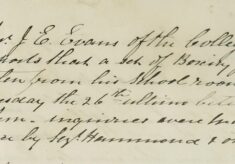 J. E. Evans of the Colleg
ports that a set of Boxing
len from his School room
sday the 26th ultimo betw
inquiries were ma
e by Sgt. Hammond &